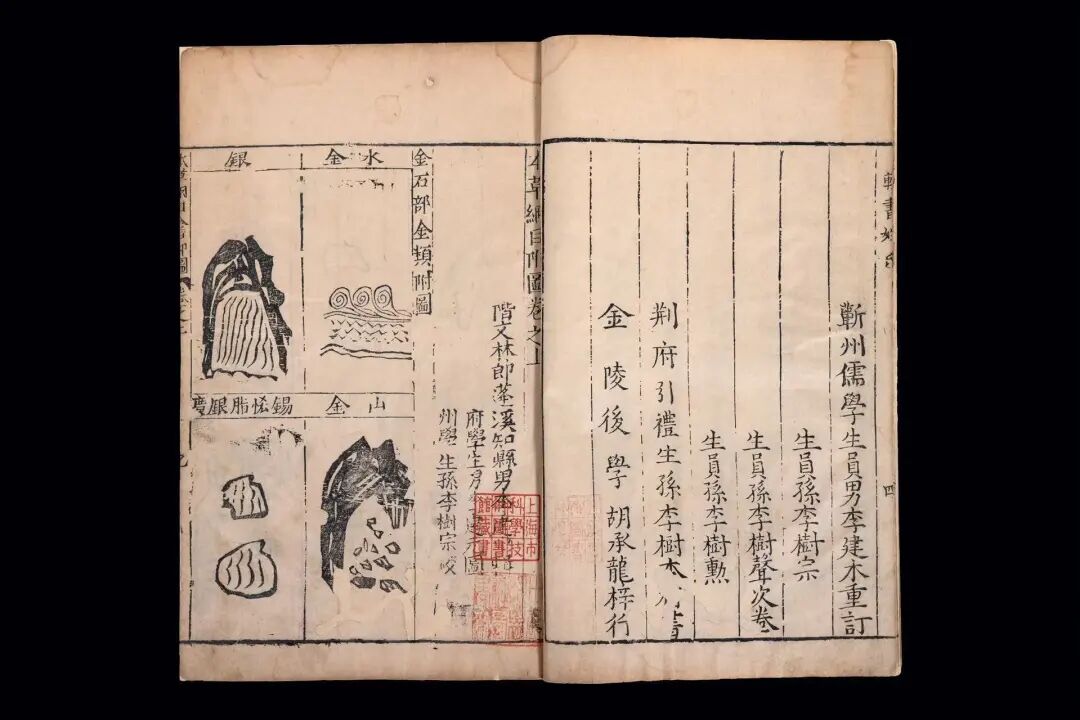 輯書姓氏
四
蘄州儒學生員男李建木重訂
生員孫李樹宗
生員孫李樹聲次卷
生員孫李樹勳
荆府引禮生孫李樹本
金陵後學胡承龍梓行
本草綱目附圖卷之上
階文林郎蓬溪知縣男李建
府學生男
州學生孫李樹宗校
金石部金類附圖
水金
山金
銀
錫恡脂銀廣
上海市
科學技
館藏書